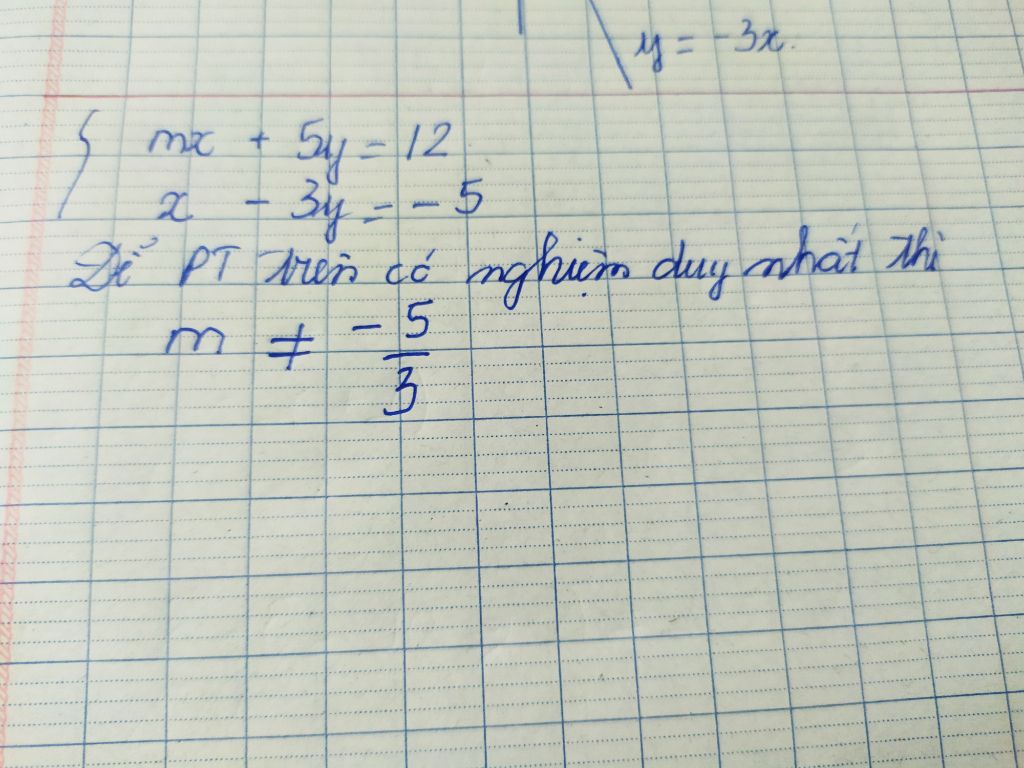 y = -3x.
{ mx + 5y = 12
x - 3y = - 5
Để PT trên có nghiệm duy nhất thì
m ≠ -5/3